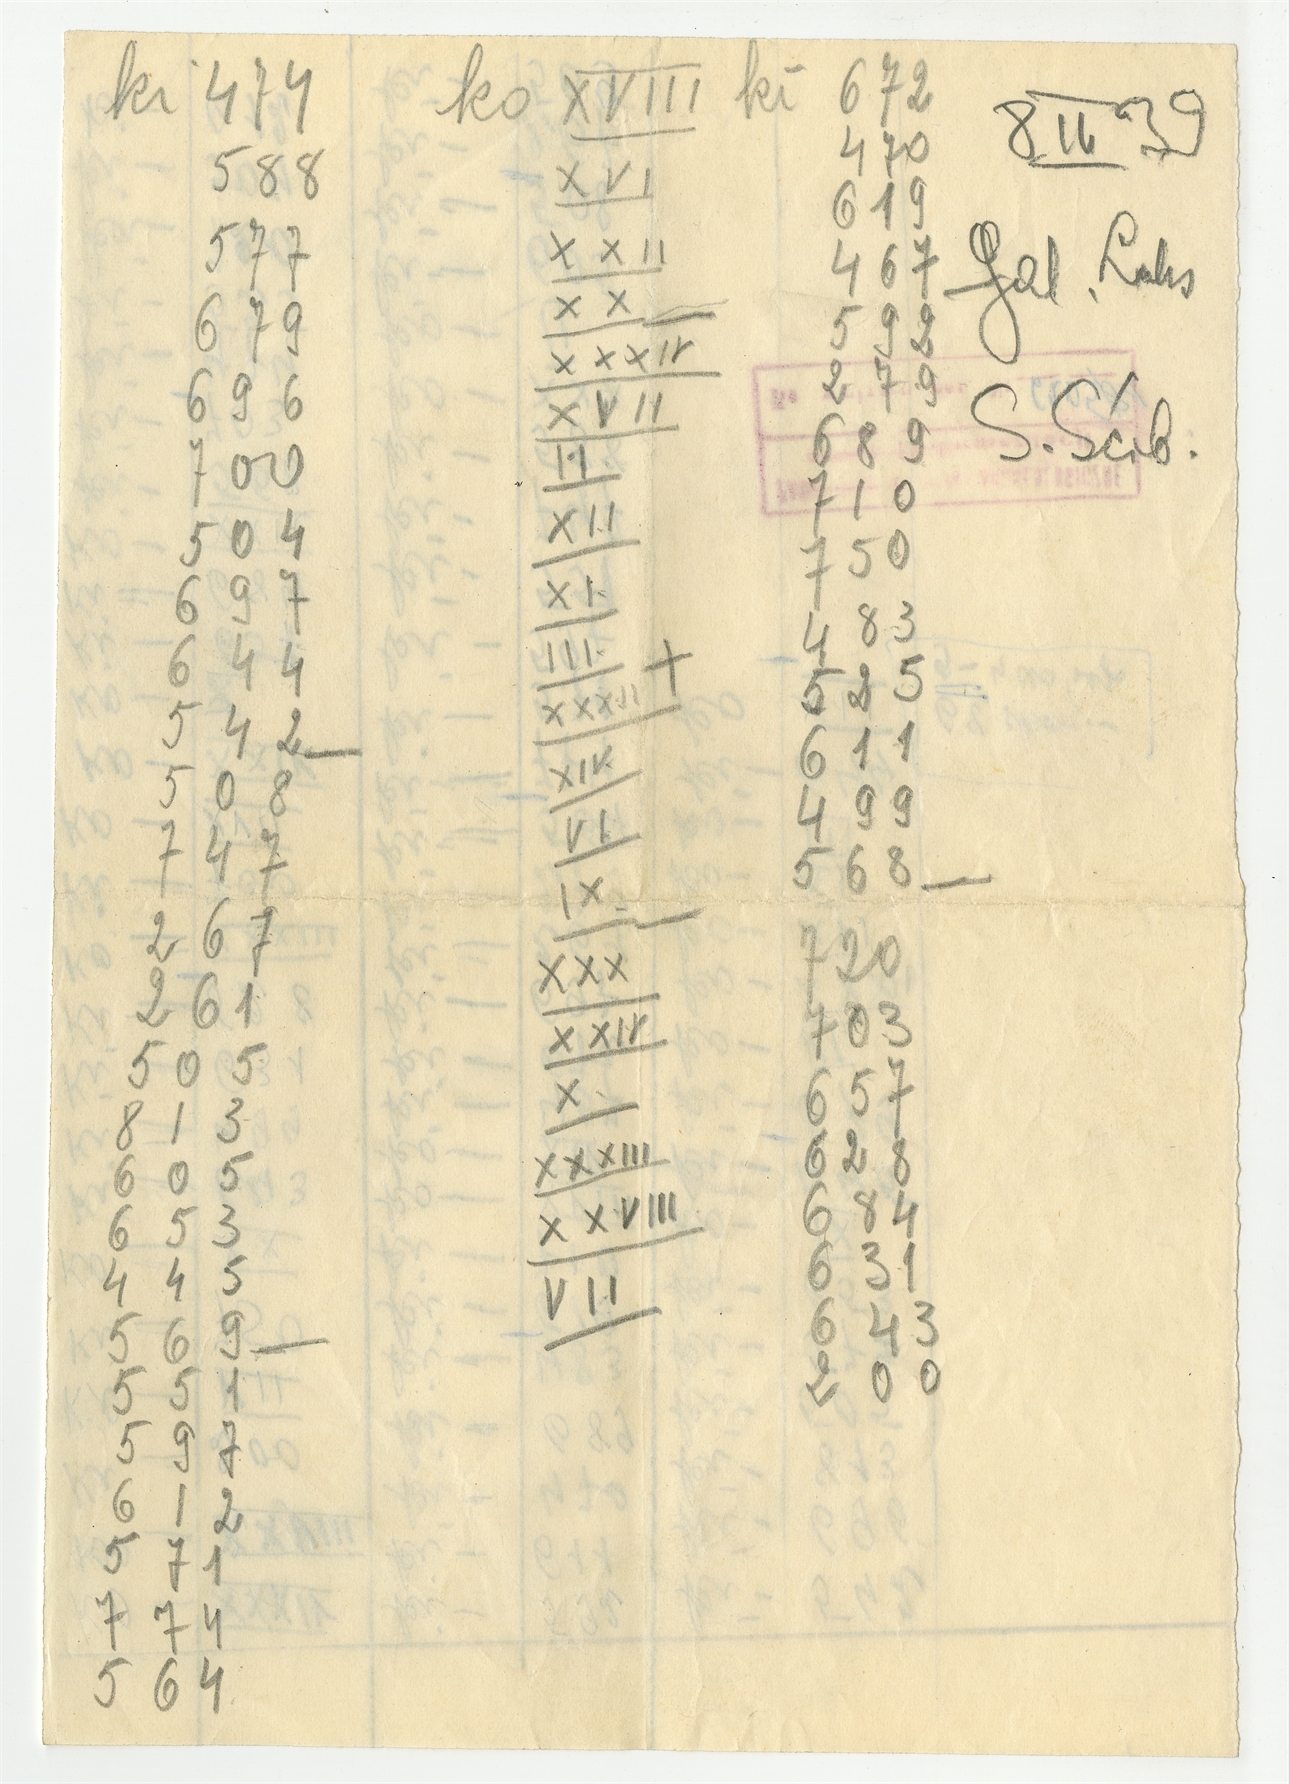 ki 474
588
577
679
696
700
504
697
644
542 —
508
747
267
261
505
813
605
653
445
569 —
551
597
612
571
774
564
ko XVIII
XVI
XXII
XX —
XXXIV
XVII
II
XII
XI
III +
XXXII
XIV
VI
IX —
XXX
XXIV
X
XXXIII
XXVIII
VII
ki 672
470
619
467
592
279
689
710
750
483
525
611
499
568 —
720
703
657
628
684
631
643
200
8 II 39
Gal. Luks
S. Śćib.